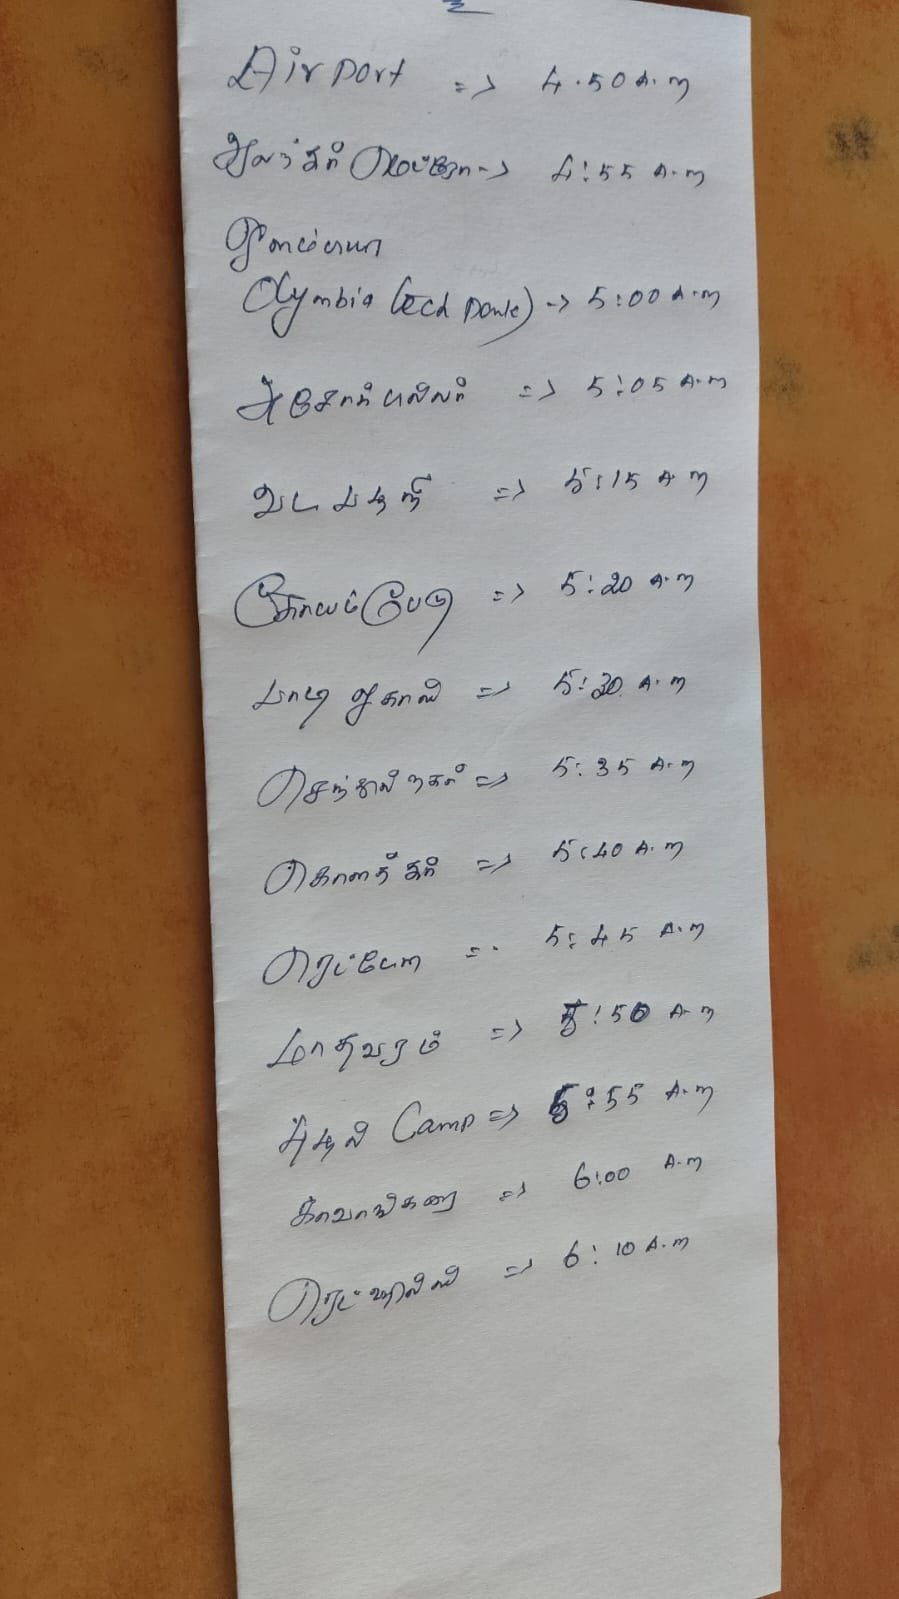 Airport => 4.50 A.m
ஆலந்தூர் மெட்ரோ -> 4:55 A.m
ஒலம்பியா
Olymbia (Tech Park) -> 5:00 A.m
அசோக் பில்லர் => 5:05 A.m
வட பழநி => 5:15 A.m
கோயம்பேடு => 5:20 A.m
பாடி => 5:30 A.m
செந்தில் நகர் => 5:35 A.m
கொளத்தூர் => 5:40 A.m
ரெட்டேரி = 5:45 A.m
மாதவரம் => 5:50 A.m
புழல் Camp => 5:55 A.m
காவாங்கரை => 6:00 A.m
ரெட் ஹில்ஸ் => 6:10 A.m